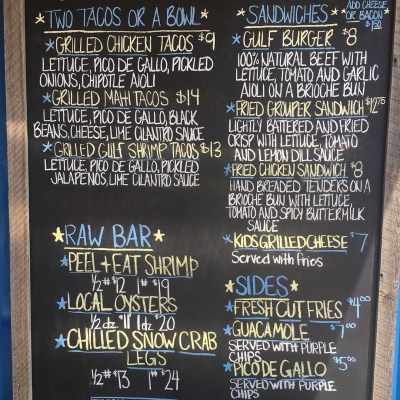 TWO TACOS OR A BOWL
GRILLED CHICKEN TACOS $9
LETTUCE, PICO DE GALLO, PICKLED
ONIONS, CHIPOTLE AIOLI
GRILLED MAHI TACOS $14
LETTUCE, PICO DE GALLO, BLACK
BEANS, CHEESE, LIME CILANTRO SAUCE
GRILLED GULF SHRIMP TACOS $13
LETTUCE, PICO DE GALLO, PICKLED
JALAPENOS, LIME CILANTRO SAUCE
RAW BAR
PEEL + EAT SHRIMP
1/2 # $12 1# $19
LOCAL OYSTERS
1/2 dz $11 1 dz $20
CHILLED SNOW CRAB
LEGS
1/2 # $13 1# $24
SANDWICHES
ADD CHEESE
OR BACON
$1.50
GULF BURGER $8
100% NATURAL BEEF WITH
LETTUCE, TOMATO AND GARLIC
AIOLI ON A BRIOCHE BUN
FRIED GROUPER SANDWICH $12.75
LIGHTLY BATTERED AND FRIED
CRISP WITH LETTUCE, TOMATO
AND LEMON DILL SAUCE
FRIED CHICKEN SANDWICH $8
HAND BREADED TENDERS ON A
BRIOCHE BUN WITH LETTUCE,
TOMATO AND SPICY BUTTERMILK
SAUCE
KIDS GRILLED CHEESE $7
Served with fries
SIDES
FRESH CUT FRIES $4.00
GUACAMOLE $7.00
SERVED WITH PURPLE
CHIPS
PICO DE GALLO $5.00
SERVED WITH PURPLE
CHIPS